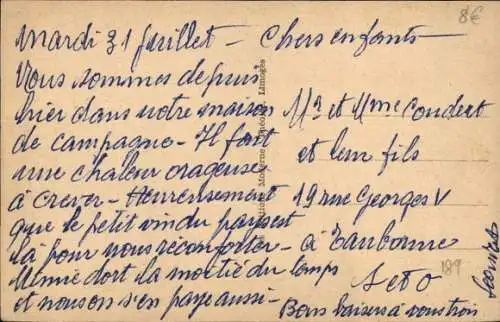 8€
Mardi 31 Juillet - Chers enfants
Vous sommes depuis
hier dans notre maison
de campagne - Il fait
une chaleur orageuse
à crever - Heureusement
que le petit vin du pays est
là pour nous réconforter -
Mimie dort la moitié du temps
et nous on s'en paye aussi -
Mr et Mme Condert
et leur fils
19 rue Georges V
à Eaubonne
S et O
189
Bons baisers à vous trois
Moderne
Limoges